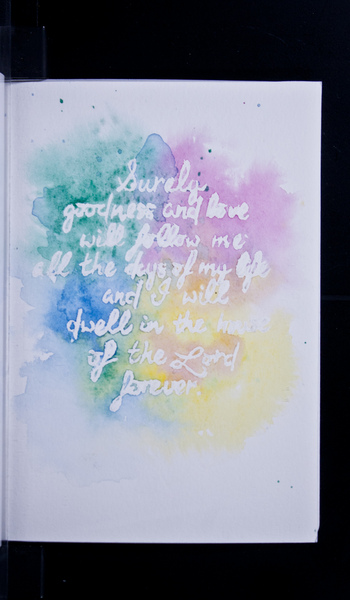 Surely
goodness and love
will follow me
all the days of my life
and I will
dwell in the house
of the Lord
forever